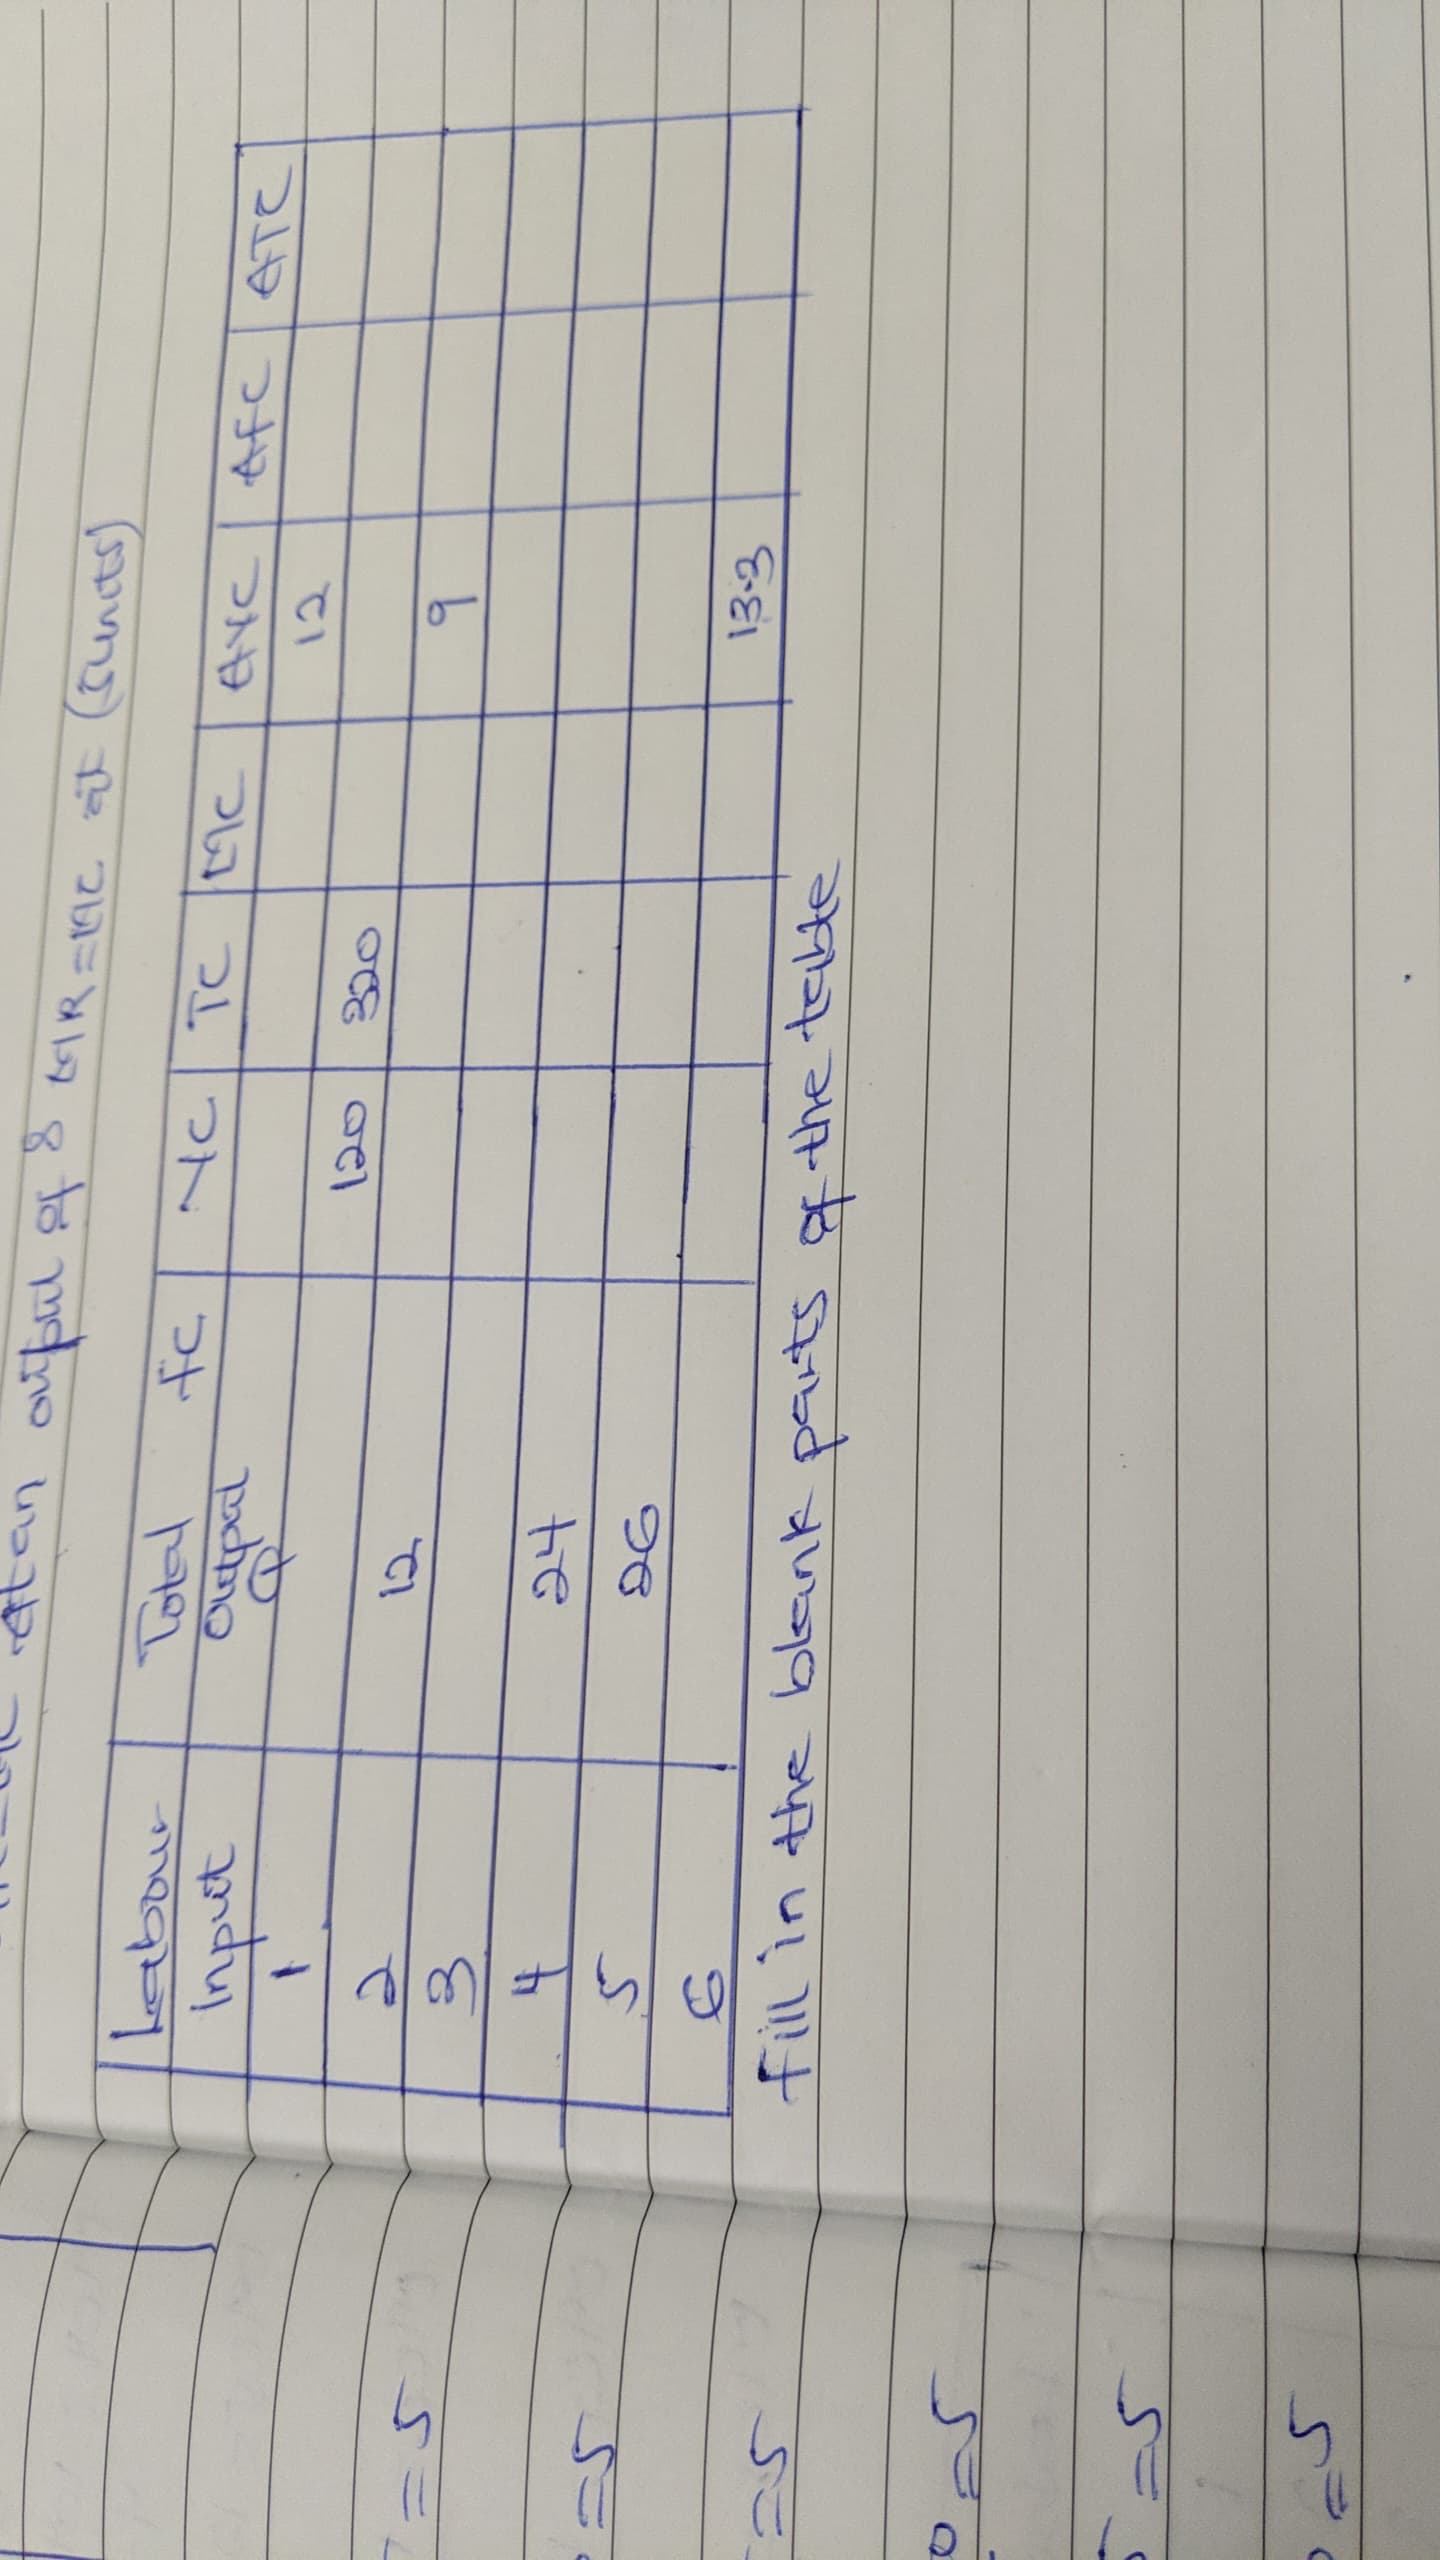 At an output of 8 MR=MC it (5units)
Labour Total FC VC TC MC AVC AFC ATC
Input Output
Q
1 12
2 12 120 320
3 9
4 24
5 26
6 13.3
Fill in the blank parts of the table
=5
=5
=5
0=5
=5
=5